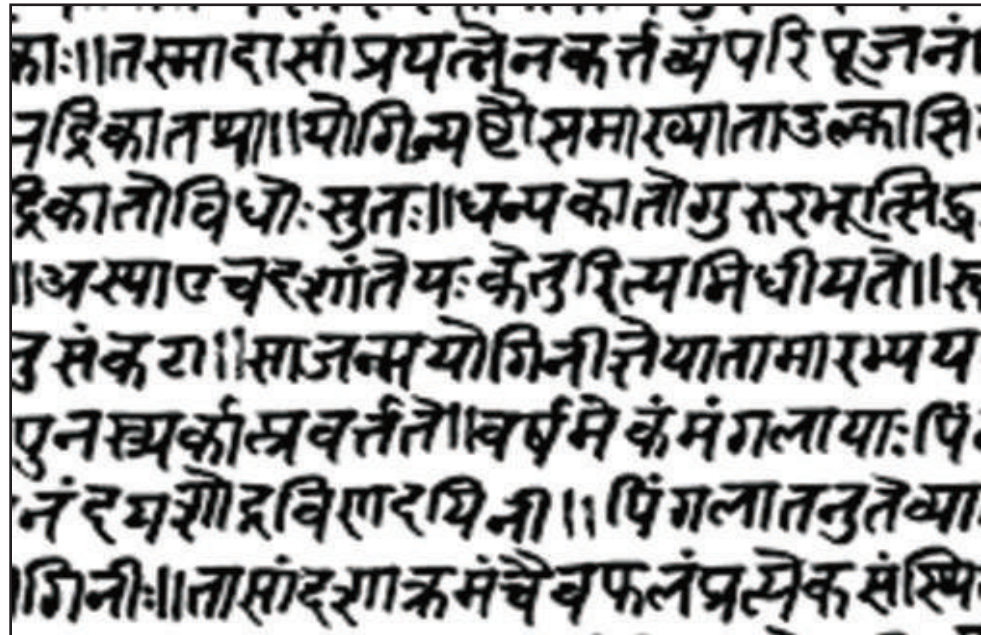 काः॥तस्मादासांप्रयत्नेनकर्त्तव्यंपरिपूजनं।
नद्रिकातथा॥योगिन्यष्टौसमाख्याताउल्कासि
द्रिकातोविधोःसुतः॥धन्यकातोगुरुरभूत्सिद्ध
॥अस्याएवदशांतेयःकेतुरित्यभिधीयते॥
नुसंकटा॥साजन्मयोगिनीज्ञेयातामारभ्यय
पुनस्त्र्यर्कात्प्रवर्त्तते॥वर्षमेकंमंगलायाःपिं
नंदयशोद्रविणदायिनी॥पिंगलातनुतेव्या
गिनीः॥तासांदशाक्रमंचैवफलंप्रत्येकसंस्थि